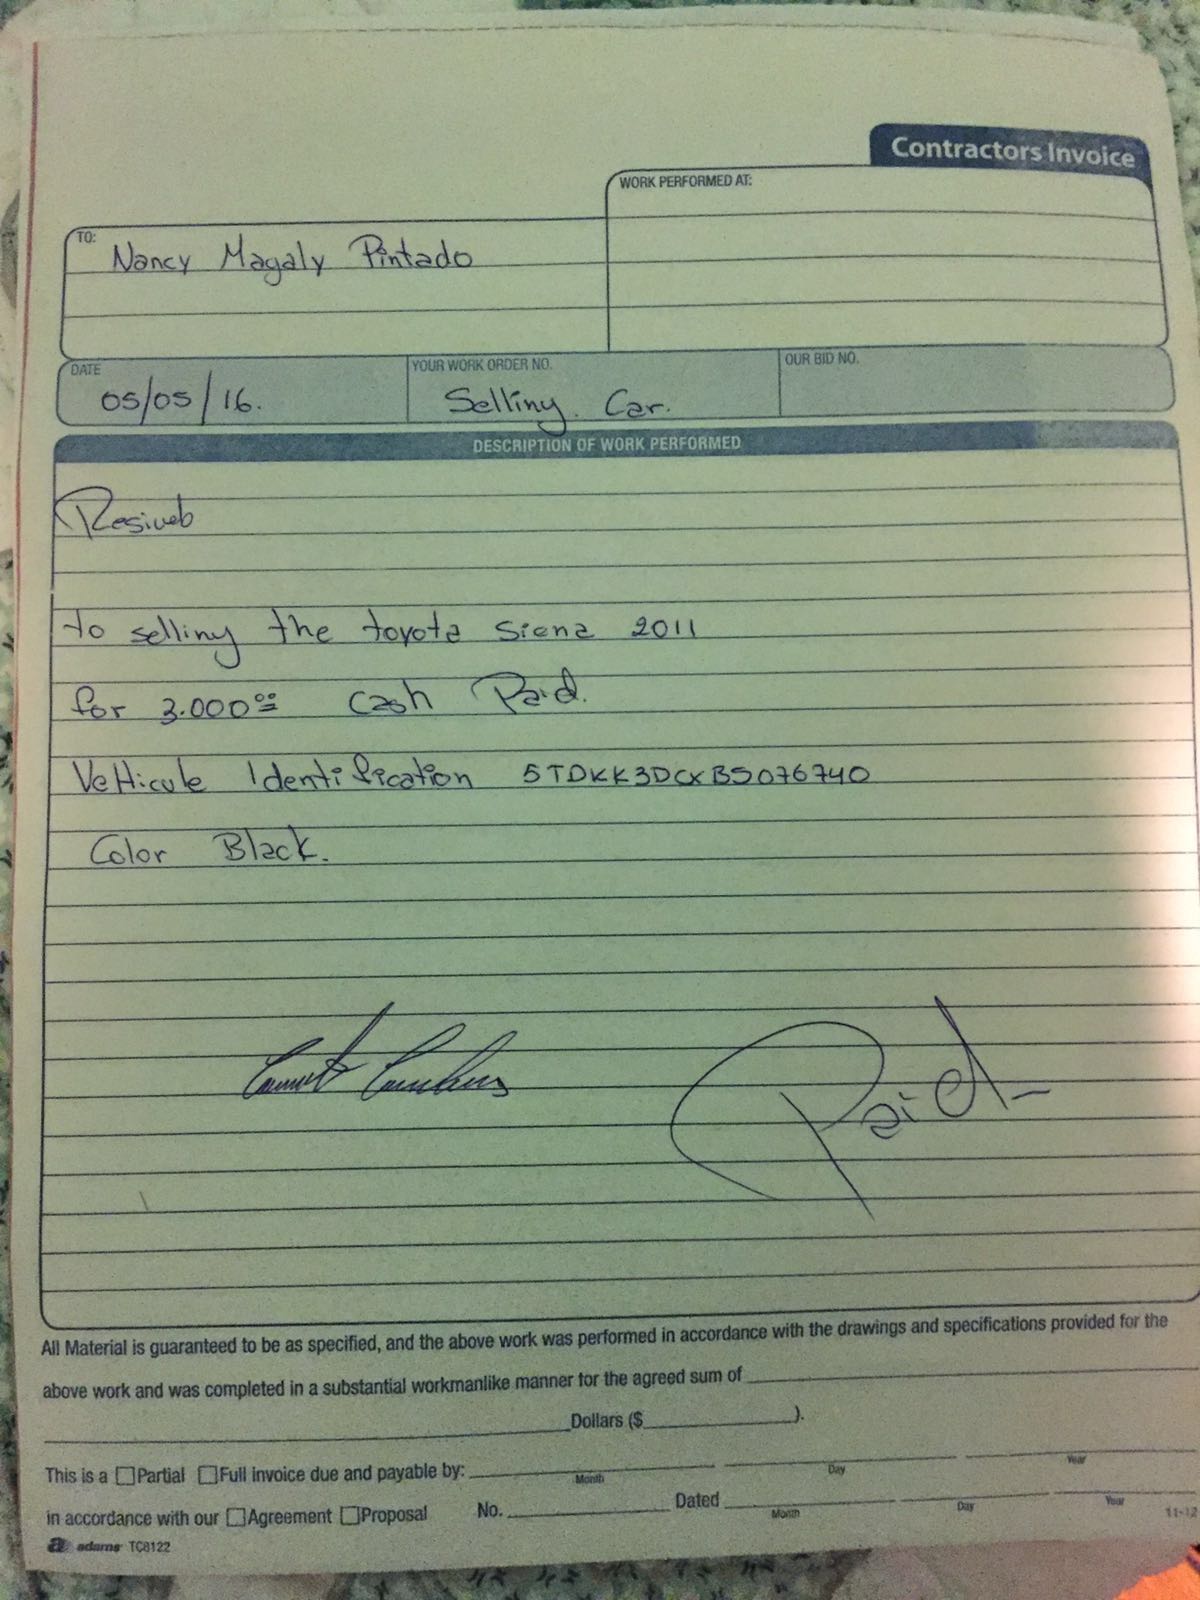 Contractors Invoice
WORK PERFORMED AT:
TO:
Nancy Magaly Pintado
DATE
05/05/16.
YOUR WORK ORDER NO.
Selliny. Car.
OUR BID NO.
DESCRIPTION OF WORK PERFORMED
Resiveb
to selliny the toyota siena 2011
for 3.000.00 cash Paid.
VeHicule Identification 5TDKK3DCXBS076740
Color Black.
Paid
All Material is guaranteed to be as specified, and the above work was performed in accordance with the drawings and specifications provided for the
above work and was completed in a substantial workmanlike manner for the agreed sum of
Dollars ($ ).
This is a Partial Full invoice due and payable by:
Month Day Year
in accordance with our Agreement Proposal No. Dated
Month Day Year
11-12
adams TC8122